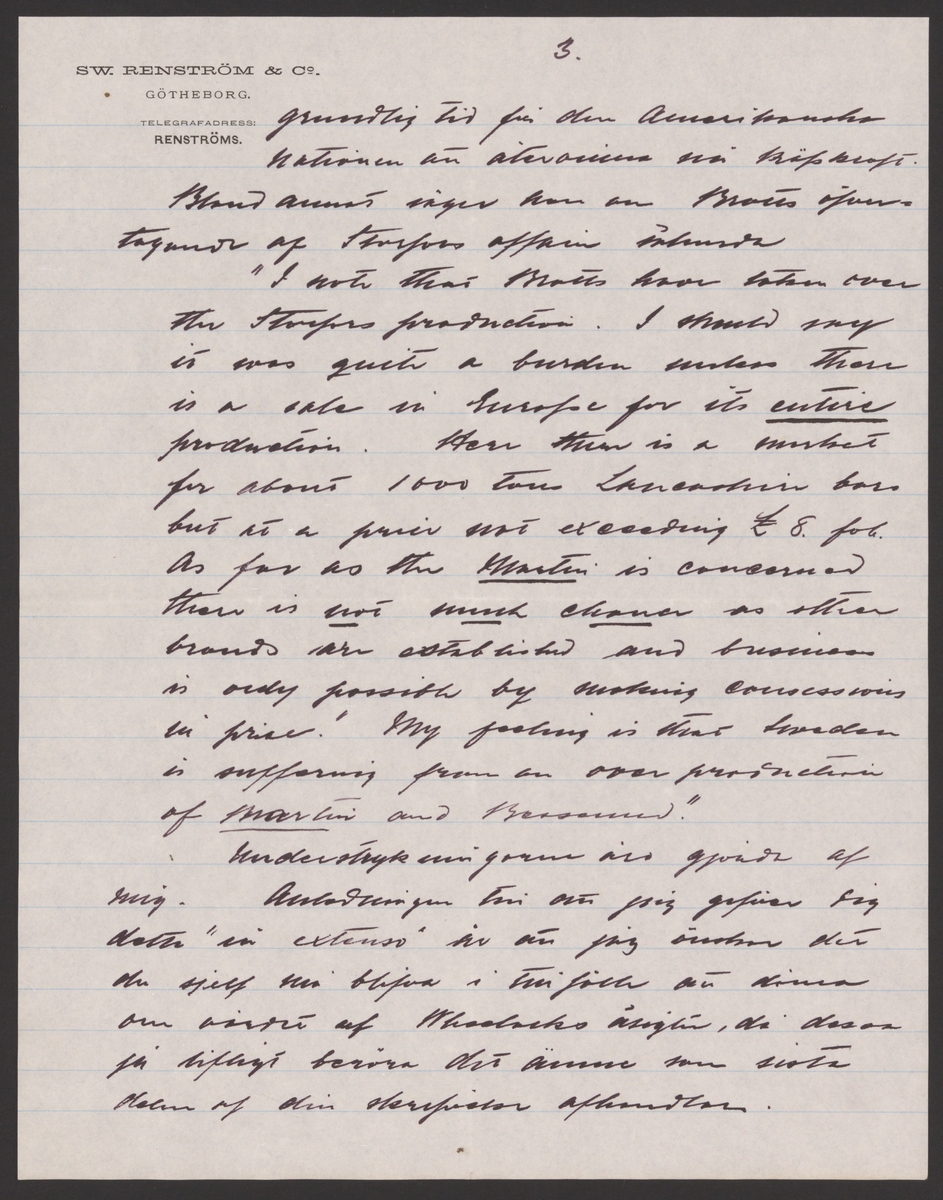 3.
SW. RENSTRÖM & Co.
GÖTHEBORG.
TELEGRAFADRESS:
RENSTRÖMS.
grundlig tid för den Amerikanska
Nationen att återvinna sin köpkraft.
Bland annat säger han om Bratts öfver-
tagande af Storfors affären
"I note that Bratts have taken over
the Storfors production. I should say
it was quite a burden unless there
is a sale in Europe for its entire
production. Here there is a market
for about 1000 tons Lancashire bars
but at a price not exceeding £ 8. fob.
As far as the Martin is concerned
there is not much chance as other
brands are established and business
is only possible by making consessions
in price." My feeling is that Sweden
is suffering from an over production
of Martin and Bessemer."
Understrykningarne äro gjorde af
mig. Anledningen till att jag gifver dig
detta "in extenso" är att jag önskar det
du sjelf må blifva i tillfälle att döma
om värdet af Wheelocks åsigter, då dessa
så lifligt beröra det ämne som sista
delen af din skrifvelse afhandlar.